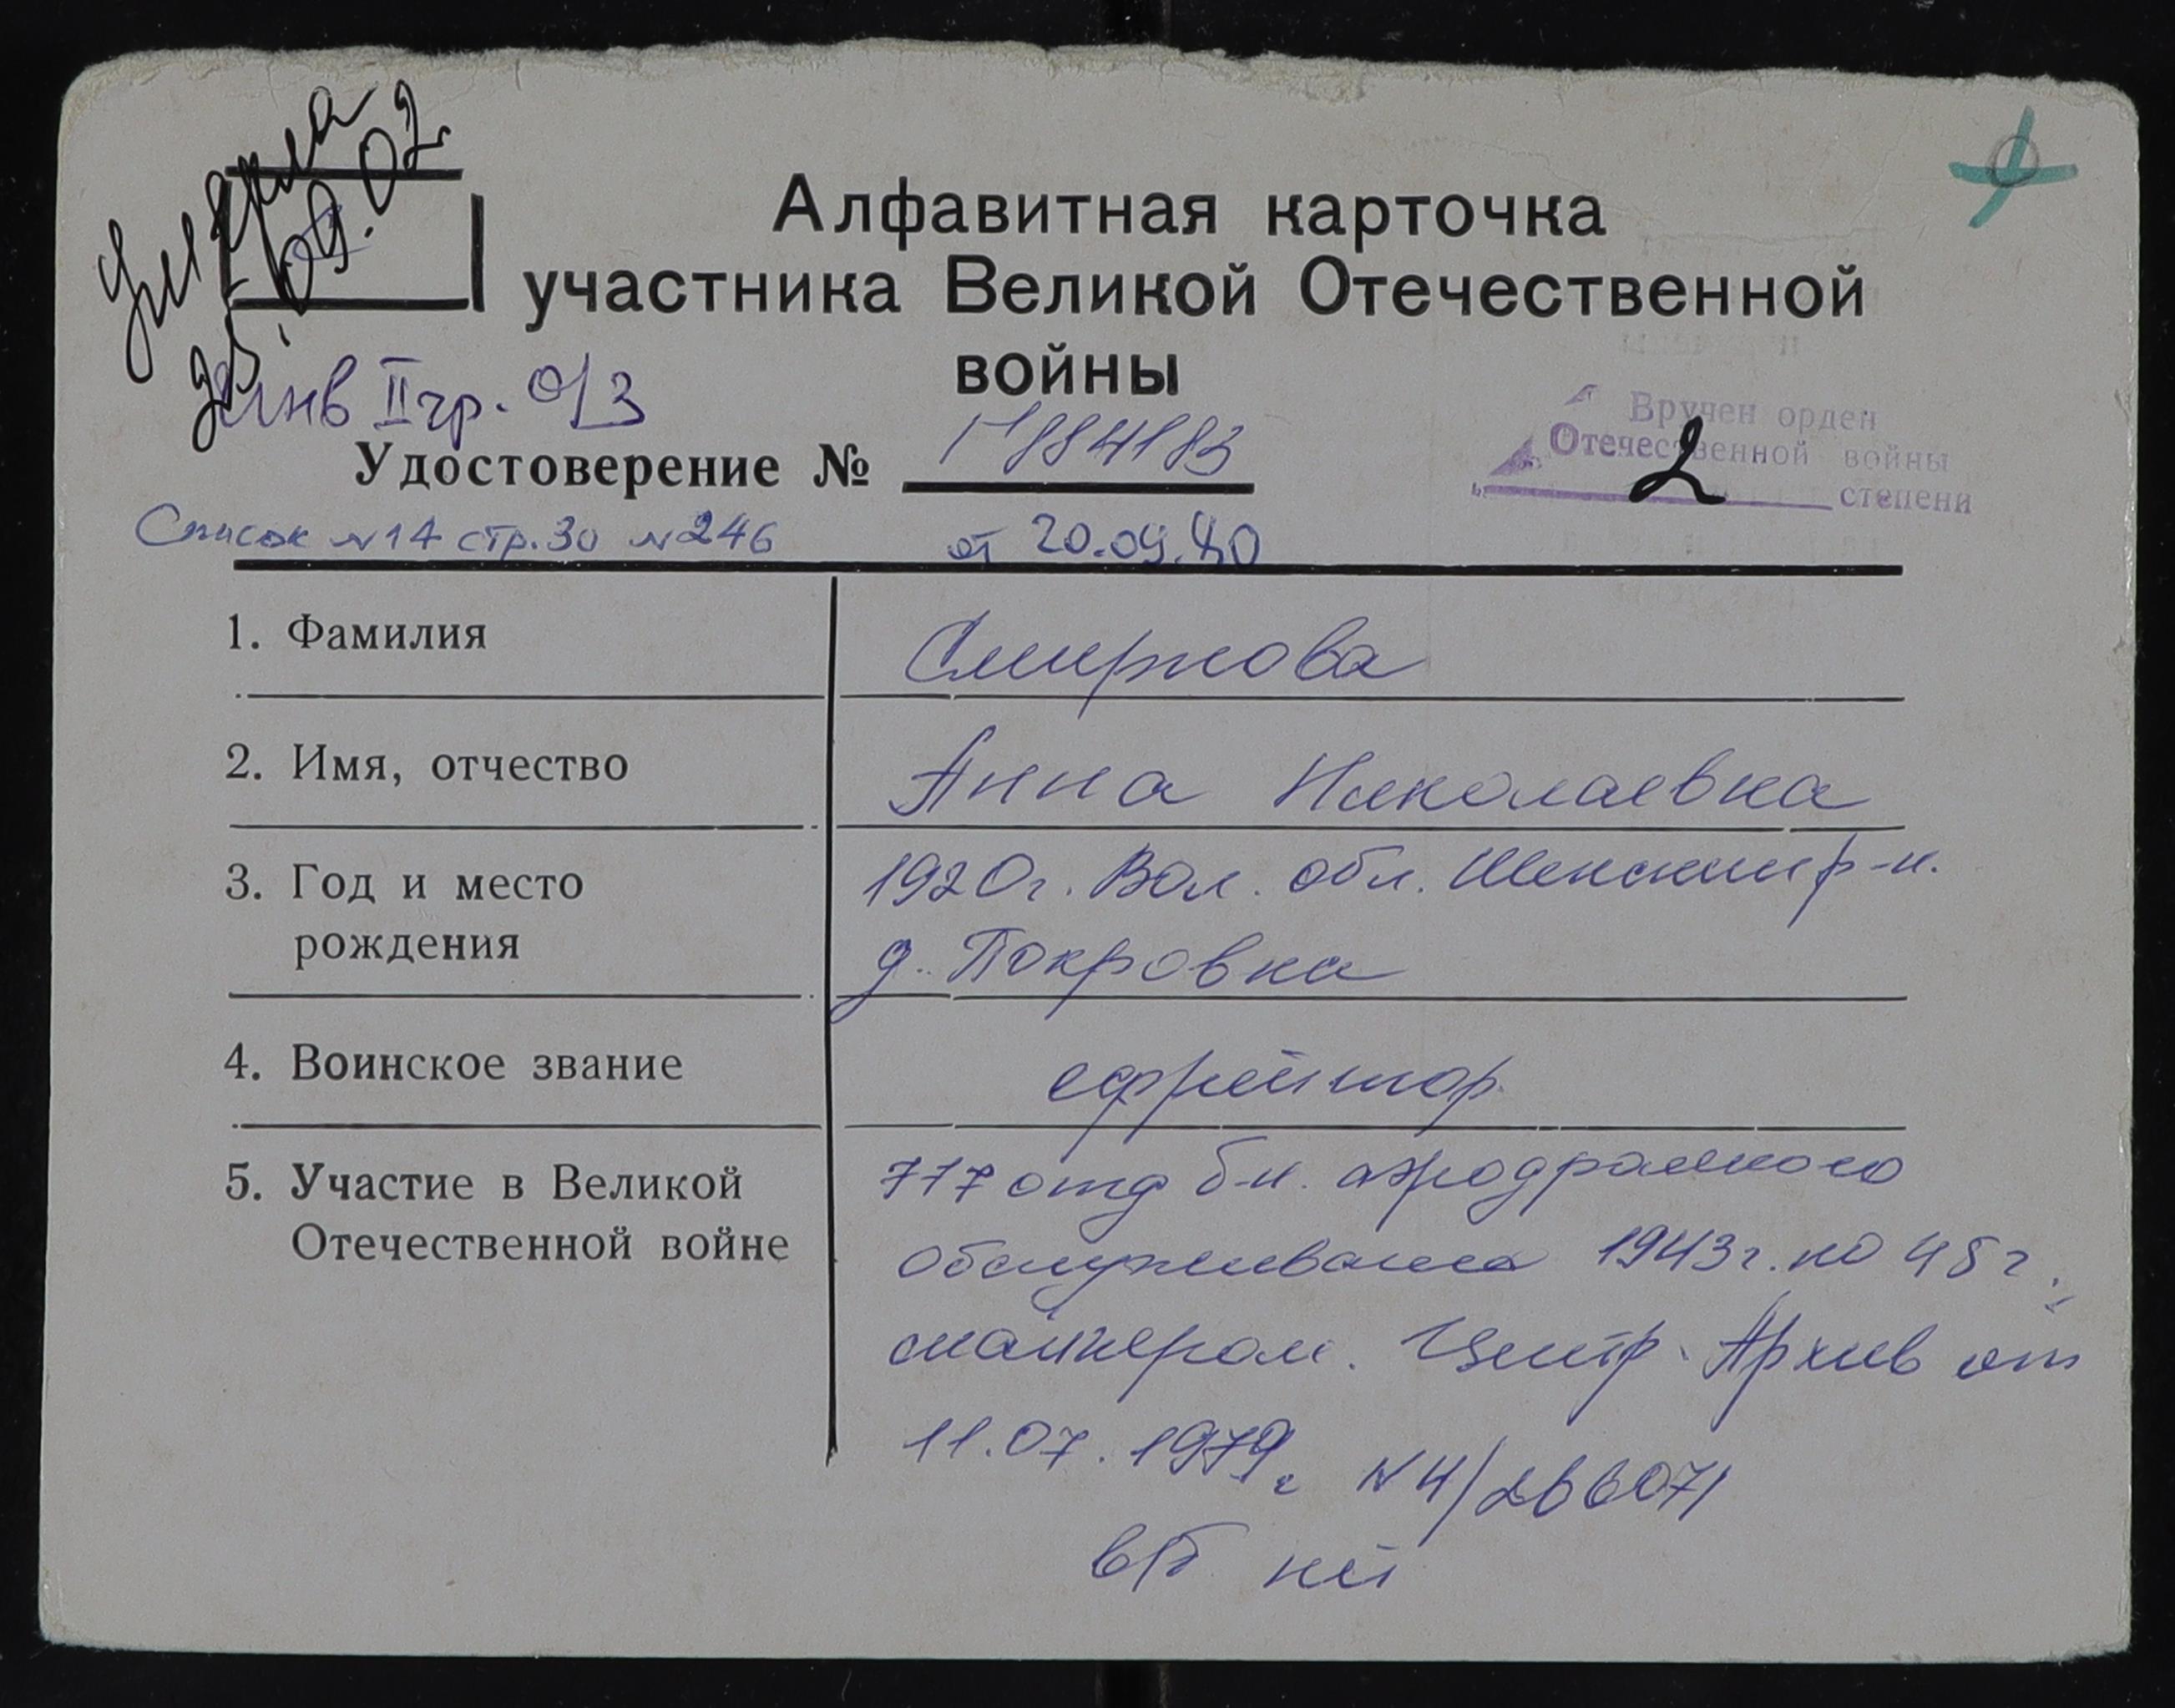 Умерла
25.09.02г
Алфавитная карточка
участника Великой Отечественной
войны
инв II гр. о/з
Удостоверение № Г 884183
Вручен орден
Отечественной войны
2 степени
Список №14 стр.30 №246 от 20.09.80
1. Фамилия Смирнова
2. Имя, отчество Анна Николаевна
3. Год и место рождения 1920г. Вол. обл. р-н.
д. Покровка
4. Воинское звание ефрейтор
5. Участие в Великой Отечественной войне 717 отд б-н. аэродромного
обслуживания 1943г. по 45г.
Центр. Архив от
11.07.1979г №4/266071
в/б